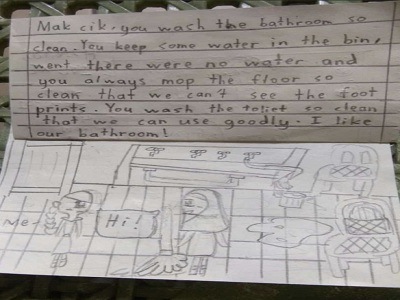 Mak cik, you wash the bathroom so
clean. You keep some water in the bin,
went there were no water and
you always mop the floor so
clean that we can't see the foot
prints. You wash the toliet so clean
that we can use goodly. I like
our bathroom!
Me
Hi!